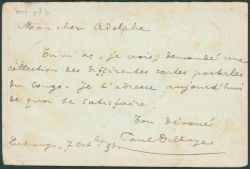 Mon cher Adolphe
Tu m'as, je crois, demandé une
collection des différentes cartes postales
du Congo. Je t'adresse aujourd'hui
de quoi te satisfaire.
Ton dévoué
7 Oct
Paul Delhaye